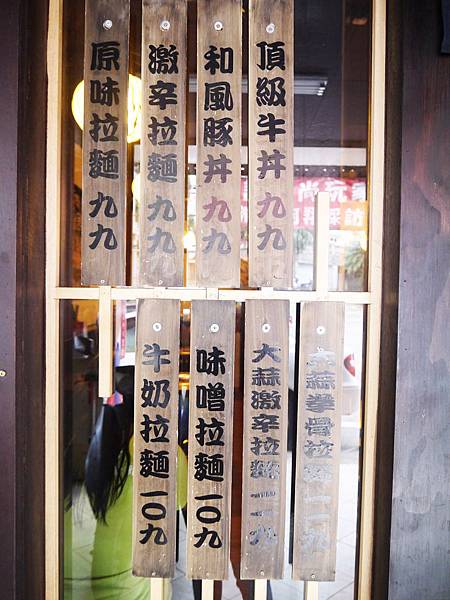 頂級牛丼九九
和風豚丼九九
激辛拉麵九九
原味拉麵九九
大蒜拳骨拉麵一一九
大蒜激辛拉麵一一九
味噌拉麵一〇九
牛奶拉麵一〇九